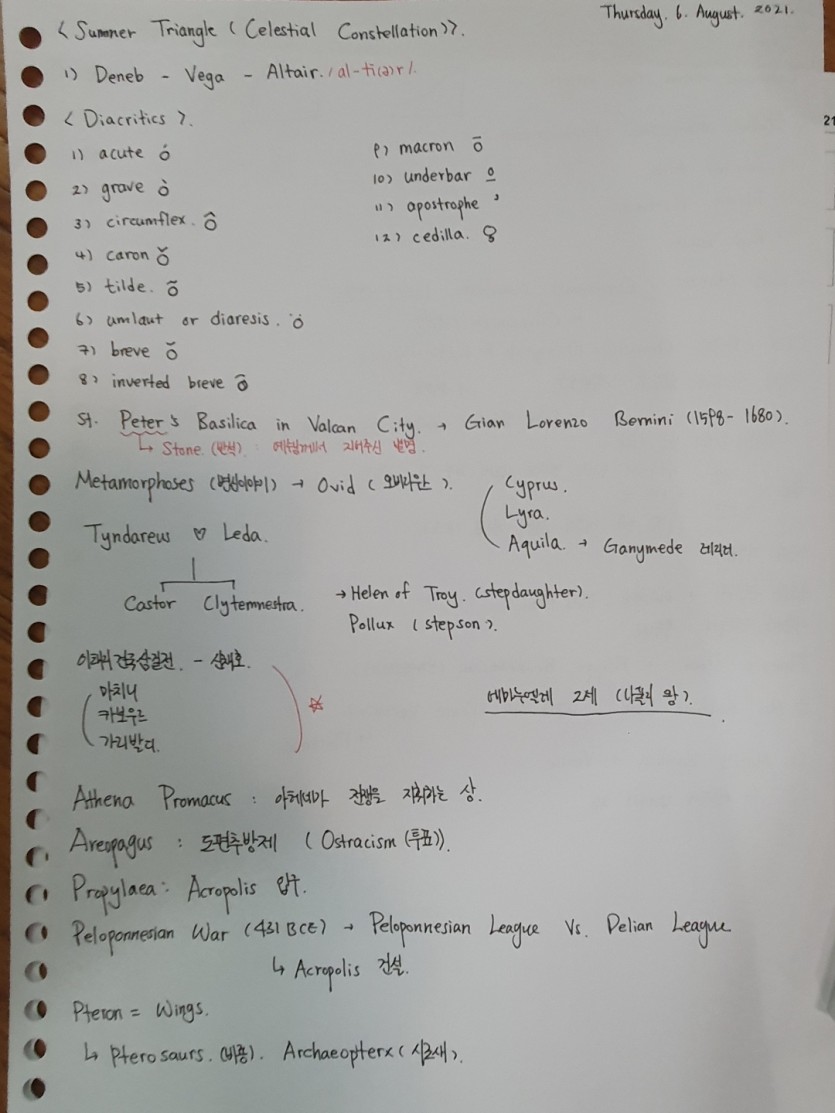 Thursday. 6. August. 2021.
< Summer Triangle ( Celestial Constellation )>.
1) Deneb - Vega - Altair. /al-ti(ə)r/.
< Diacritics >.
1) acute ó
2) grave ò
3) circumflex. ô
4) caron ǒ
5) tilde. õ
6) umlaut or diaresis. ö
7) breve ŏ
8) inverted breve ȏ
9) macron ō
10) underbar o̲
11) apostrophe ’
12) cedilla. o̧
St. Peter's Basilica in Valcan City. → Gian Lorenzo Bernini (1598 - 1680).
↳ Stone. (반석) : 예수님께서 지어주신 별명.
Metamorphoses (변신이야기) → Ovid ( 오비디우스 ).
Cyprus.
Lyra.
Aquila. → Ganymede 데려다.
Tyndareus ♡ Leda.
Castor Clytemnestra.
→ Helen of Troy. (stepdaughter).
Pollux ( stepson ).
이태리 건국 삼걸전. - 신채호.
마치니
카보우르
가리발디.
에마누엘레 2세 (나폴리 왕).
Athena Promacus : 아테네가 전쟁을 지휘하는 상.
Areopagus : 도편추방제 ( Ostracism (투표)).
Propylaea : Acropolis 입구.
Peloponnesian War (431 BCE) → Peloponnesian League Vs. Delian League
↳ Acropolis 건설.
Pteron = Wings.
↳ Pterosaurs. (비룡). Archaeopterx ( 시조새 ).
21